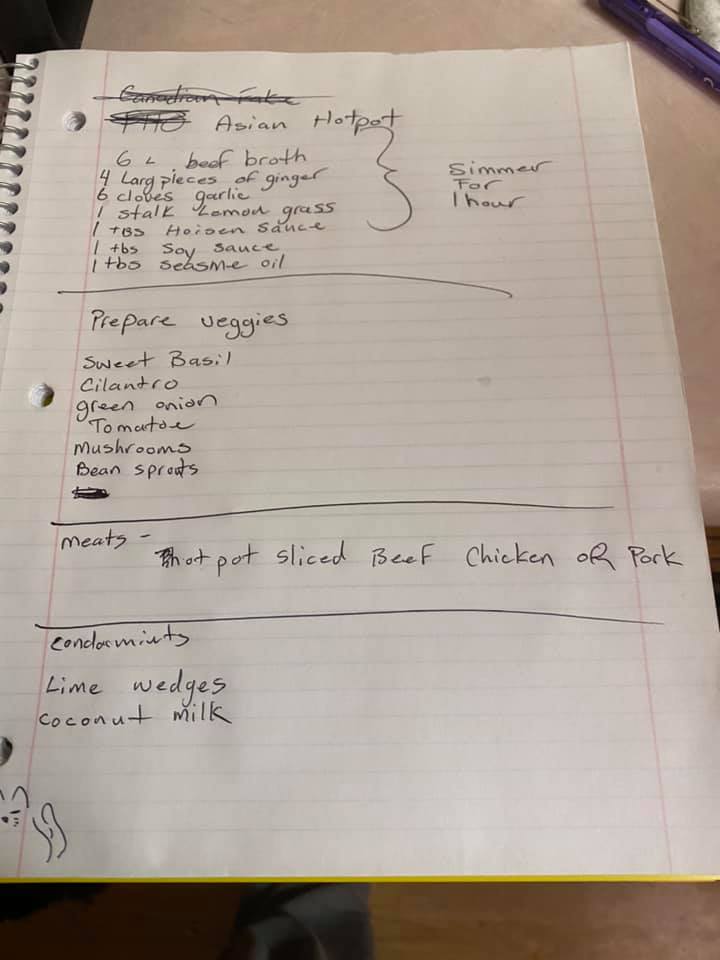 Canadian Fake
PHO Asian Hotpot
6 L beef broth
4 Larg pieces of ginger
6 cloves garlic
1 stalk Lemon grass
1 tBS Hoisen sauce
1 tbs Soy sauce
1 tbs seasme oil
Simmer
For
1 hour
Prepare veggies
Sweet Basil
Cilantro
green onion
Tomatoe
Mushrooms
Bean sprouts
meats -
hot pot sliced Beef Chicken OR Pork
condarmints
Lime wedges
coconut milk